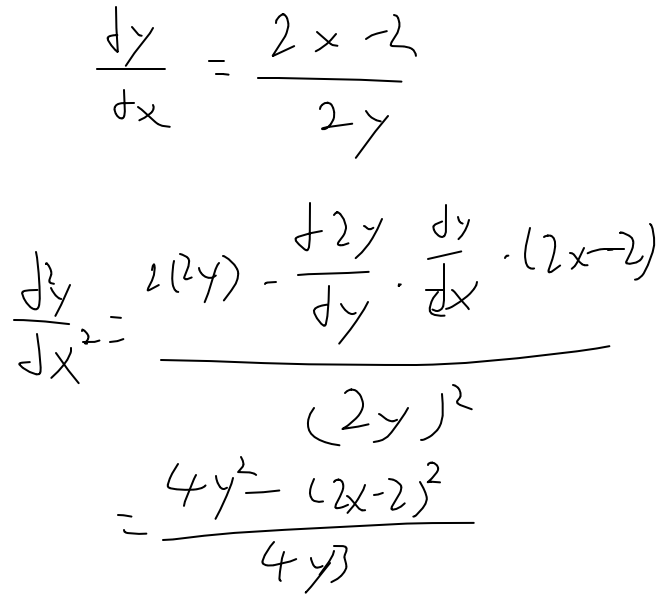 dy/dx = (2x-2)/(2y)
d²y/dx² = (2(2y) - d2y/dy · dy/dx · (2x-2))/((2y)²)
= (4y² - (2x-2)²)/(4y³)